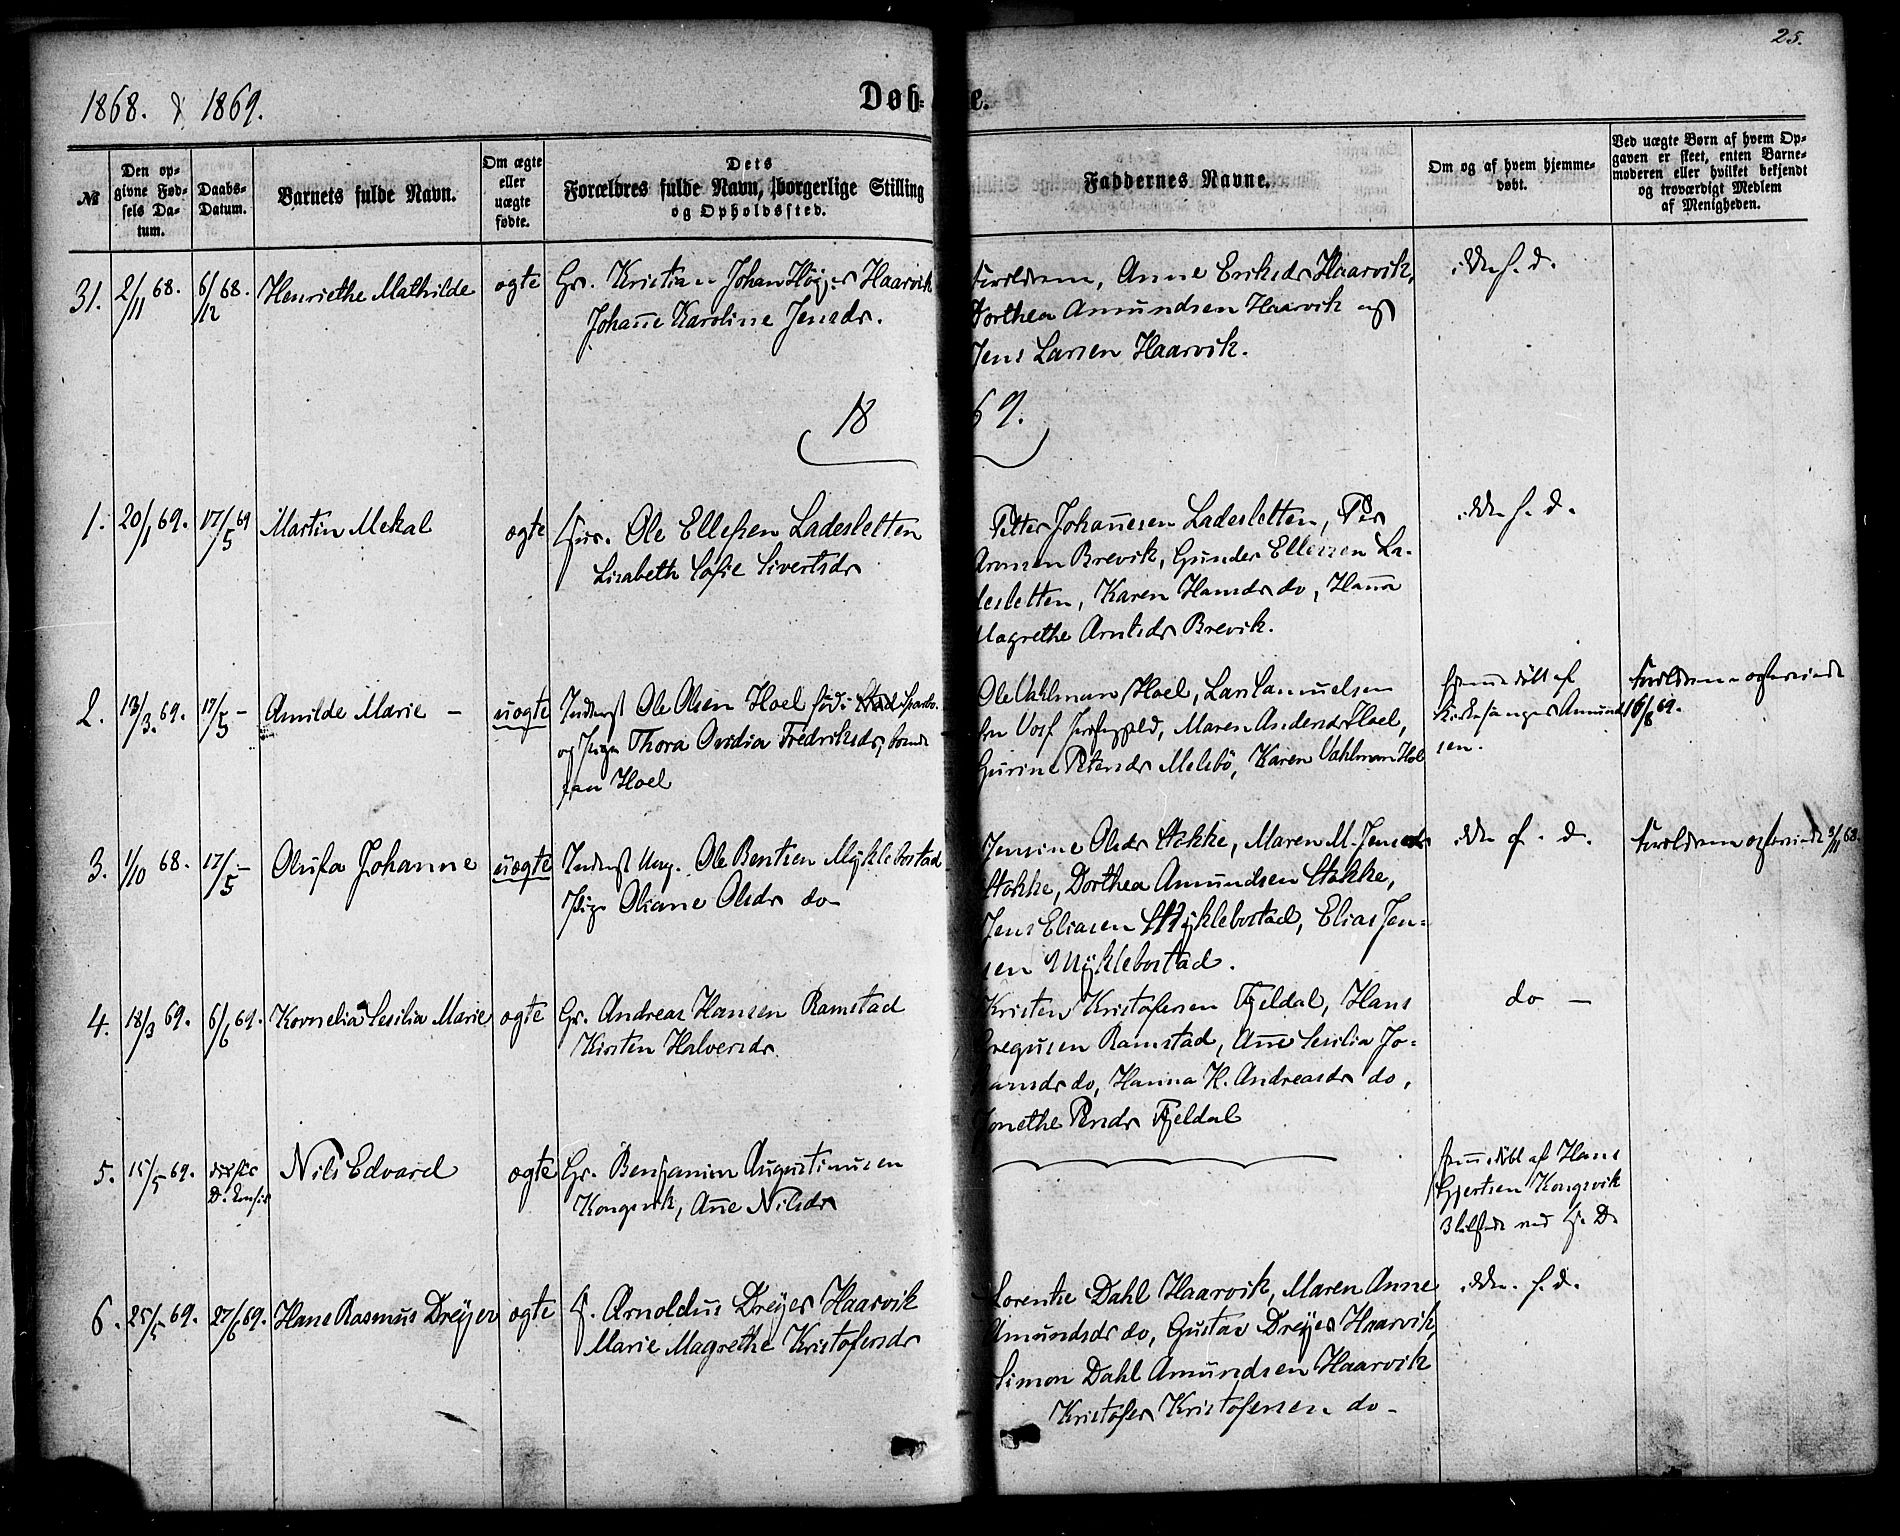 25.
1868. & 1869.
Døb- e.
№
Den op-
givne Fød-
sels Da-
tum.
Daabs-
Datum.
Barnets fulde Navn.
Om ægte
eller
uægte
fødte.
Dets
Forældres fulde Navn, borgerlige Stilling
og Opholdssted.
Faddernes Navne.
Om og af hvem hjemme-
døbt.
Ved uægte Børn af hvem Op-
gaven er skeet, enten Barne-
moderen eller hvilket bekjendt
og troværdigt Medlem
af Menigheden.
31. 2/11 68. 6/12 68. Henriethe Mathilde ægte Gr. Kristian Johan Høyer Haarvik
Johanne Karoline Jensdr.
Forældrene, Anne Eriksdr Haarvik,
Dorthea Amundsen Haarvik og
Jens Larsen Haarvik.
18 69.
1. 20/1 69. 17/5 69 Martin Mekal ægte Ole Ellefsen Ladesletten
Lisabeth Sofie Sivertsdr
Petter Johannesen Ladesletten, Per
Aronsen Brevik, Gunder Ellefsen La-
desletten, Karen Hansdr do, Hanna
Magrethe Arntsdr Brevik.
2. 13/3. 69. 17/5 – Amilde Marie – uægte Ole Olsen Hoel
og Pige Thora Ovidia Fredriksdr,
Hoel
Ole Vahlman Hoel, Lars Samuelsen
Maren Andersdr Hoel,
Gurine Petersdr Melsbö, Karen Vahlman Hoel
hjemmedøbt af
Kirkesanger Amund-
sen.
Forældrene
16/8 69.
3. 1/10 68. 17/5 – Olufa Johanne uægte Ung. Ole Bentsen Myklebostad
Pige Oliane Olsdr do –
Jensine Olsdr Stokke, Maren M. Jensdr
Stokke, Dorthea Amundsen Stokke,
Jens Eliasen Myklebostad, Elias Jen-
sen Myklebostad.
Forældrene
4. 18/3 69. 6/6 69. Kornelia Sesilia Marie ægte Gr. Andreas Hansen Ramstad
Kirsten Halversdr
Kristen Kristofersen Fjeldal, Hans
Gregusen Ramstad, Anne Sesilia Jo-
hansdr do, Hanna K. Andreasdr do,
Jonethe Persdr Fjeldal
do –
5. 15/5 69. Nils Edvard ægte Gr. Benjamin Augustinusen
Kongsvik, Anne Nilsdr
hjemmedøbt af Hans
Gjertsen Kongsvik
6. 25/5 69. 27/6 69. Hans Rasmus Dreyer ægte Arnoldus Dreyer Haarvik
Marie Magrethe Kristofersdr
Lorentse Dahl Haarvik, Maren Anne
Amundsdr do, Gustav Dreyer Haarvik,
Simon Dahl Amundsen Haarvik
Kristofer Kristofersen do –